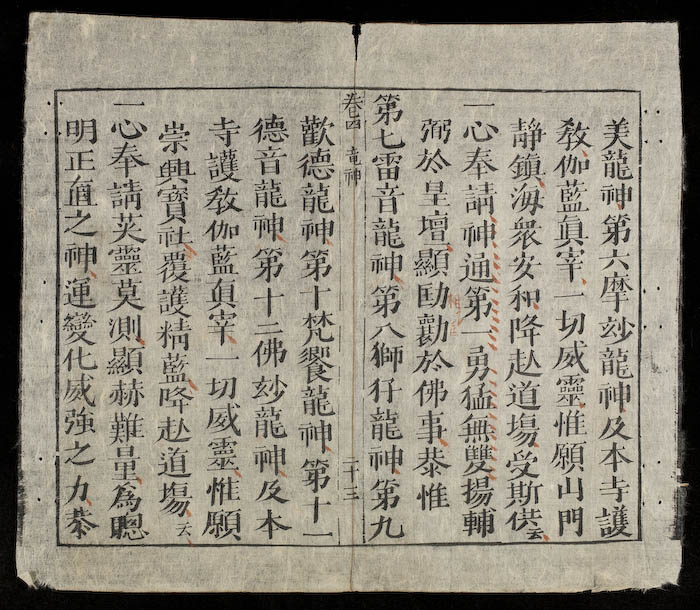 美龍神第六摩玅龍神及本寺護
教伽藍眞宰一切威靈惟願山門
靜鎮海衆安和降赴道塲受斯供云
一心奉請神通第一勇猛無雙揚輔
弼於皇壇顯劻勷於佛事恭惟
第七雷音龍神第八獅仔龍神第九
卷四 竜神 二十三
歡德龍神第十梵饗龍神第十一
德音龍神第十二佛玅龍神及本
寺護教伽藍眞宰一切威靈惟願
崇興寶社覆護精藍降赴道塲云
一心奉請英靈莫測顯赫難量為聰
明正直之神運變化威強之力恭